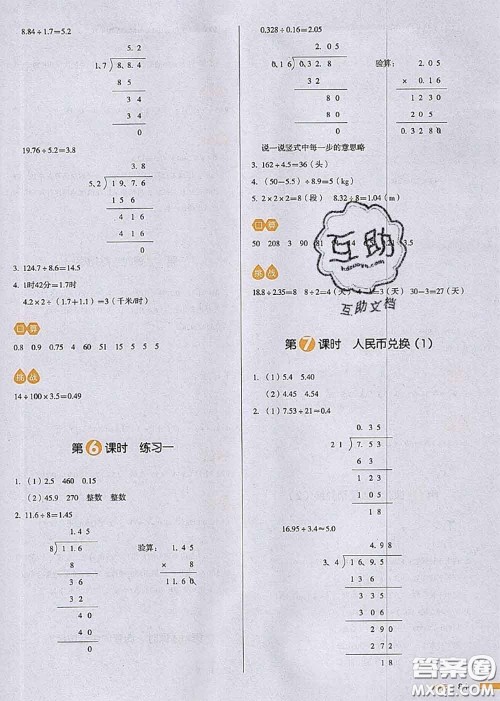 8.84÷1.7=5.2
5.2
1,7 8,8.4
85
34
34
0
19.76÷5.2=3.8
3.8
5,2 19,7.6
156
416
416
0
3. 124.7÷8.6=14.5
4. 1时42分=1.7时
4.2×2÷(1.7+1.1)=3(千米/时)
口算
0.8 0.9 0.75 4 60 51 15 5 5 5
挑战
14÷100×3.5=0.49
第6课时 练习一
1. (1)2.5 460 0.15
(2)45.9 270 整数 整数
2. 11.6÷8=1.45
1.45
8 11.6
8
36
32
40
40
0
验算: 1.45
× 8
11.60
0.328÷0.16=2.05
2.05
0,16 0,32.8
32
80
80
0
验算: 2.05
× 0.16
1230
205
0.3280
说一说竖式中每一步的意思略
3. 162÷4.5=36(头)
4. (50-5.5)÷8.9=5(kg)
5. 2×2×2=8(段) 8.32÷8=1.04(m)
口算
50 208 3 90 81
3.5
挑战
18.8÷2.35=8 8÷2=4(天)
30-3=27(天)
互助
互助文档
第7课时 人民币兑换(1)
1. (1)5.4 5.40
(2)4.45 4.54
2. (1)7.53÷21≈0.4
0.35
21 7.53
63
123
105
18
16.95÷3.4≈5.0
4.98
3,4 16,9.5
136
335
306
290
272
18
答案圈
MXQE.COM